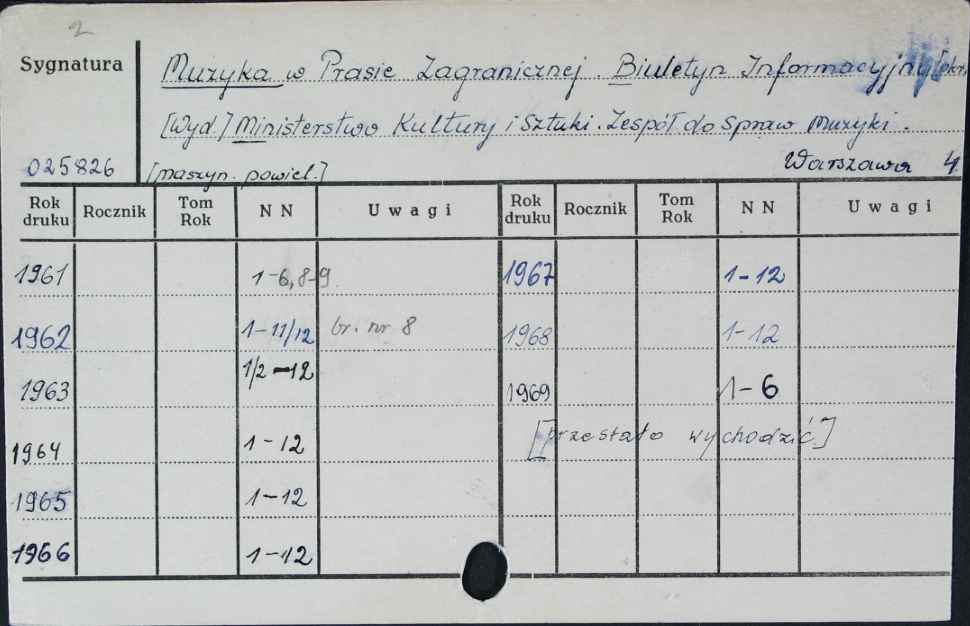 2
Sygnatura
Muzyka w Prasie Zagranicznej. Biuletyn Informacyjny
[Wyd] Ministerstwo Kultury i Sztuki. Zespół do spraw Muzyki.
025826 [maszyn. powiel.] Warszawa 4
Rok druku Rocznik Tom Rok NN Uwagi Rok druku Rocznik Tom Rok NN Uwagi
1961 1-6, 8-9 1967 1-12
1962 1-11/12 br. nr 8 1968 1-12
1963 1/2-12 1969 1-6
1964 1-12 [przestało wychodzić]
1965 1-12
1966 1-12